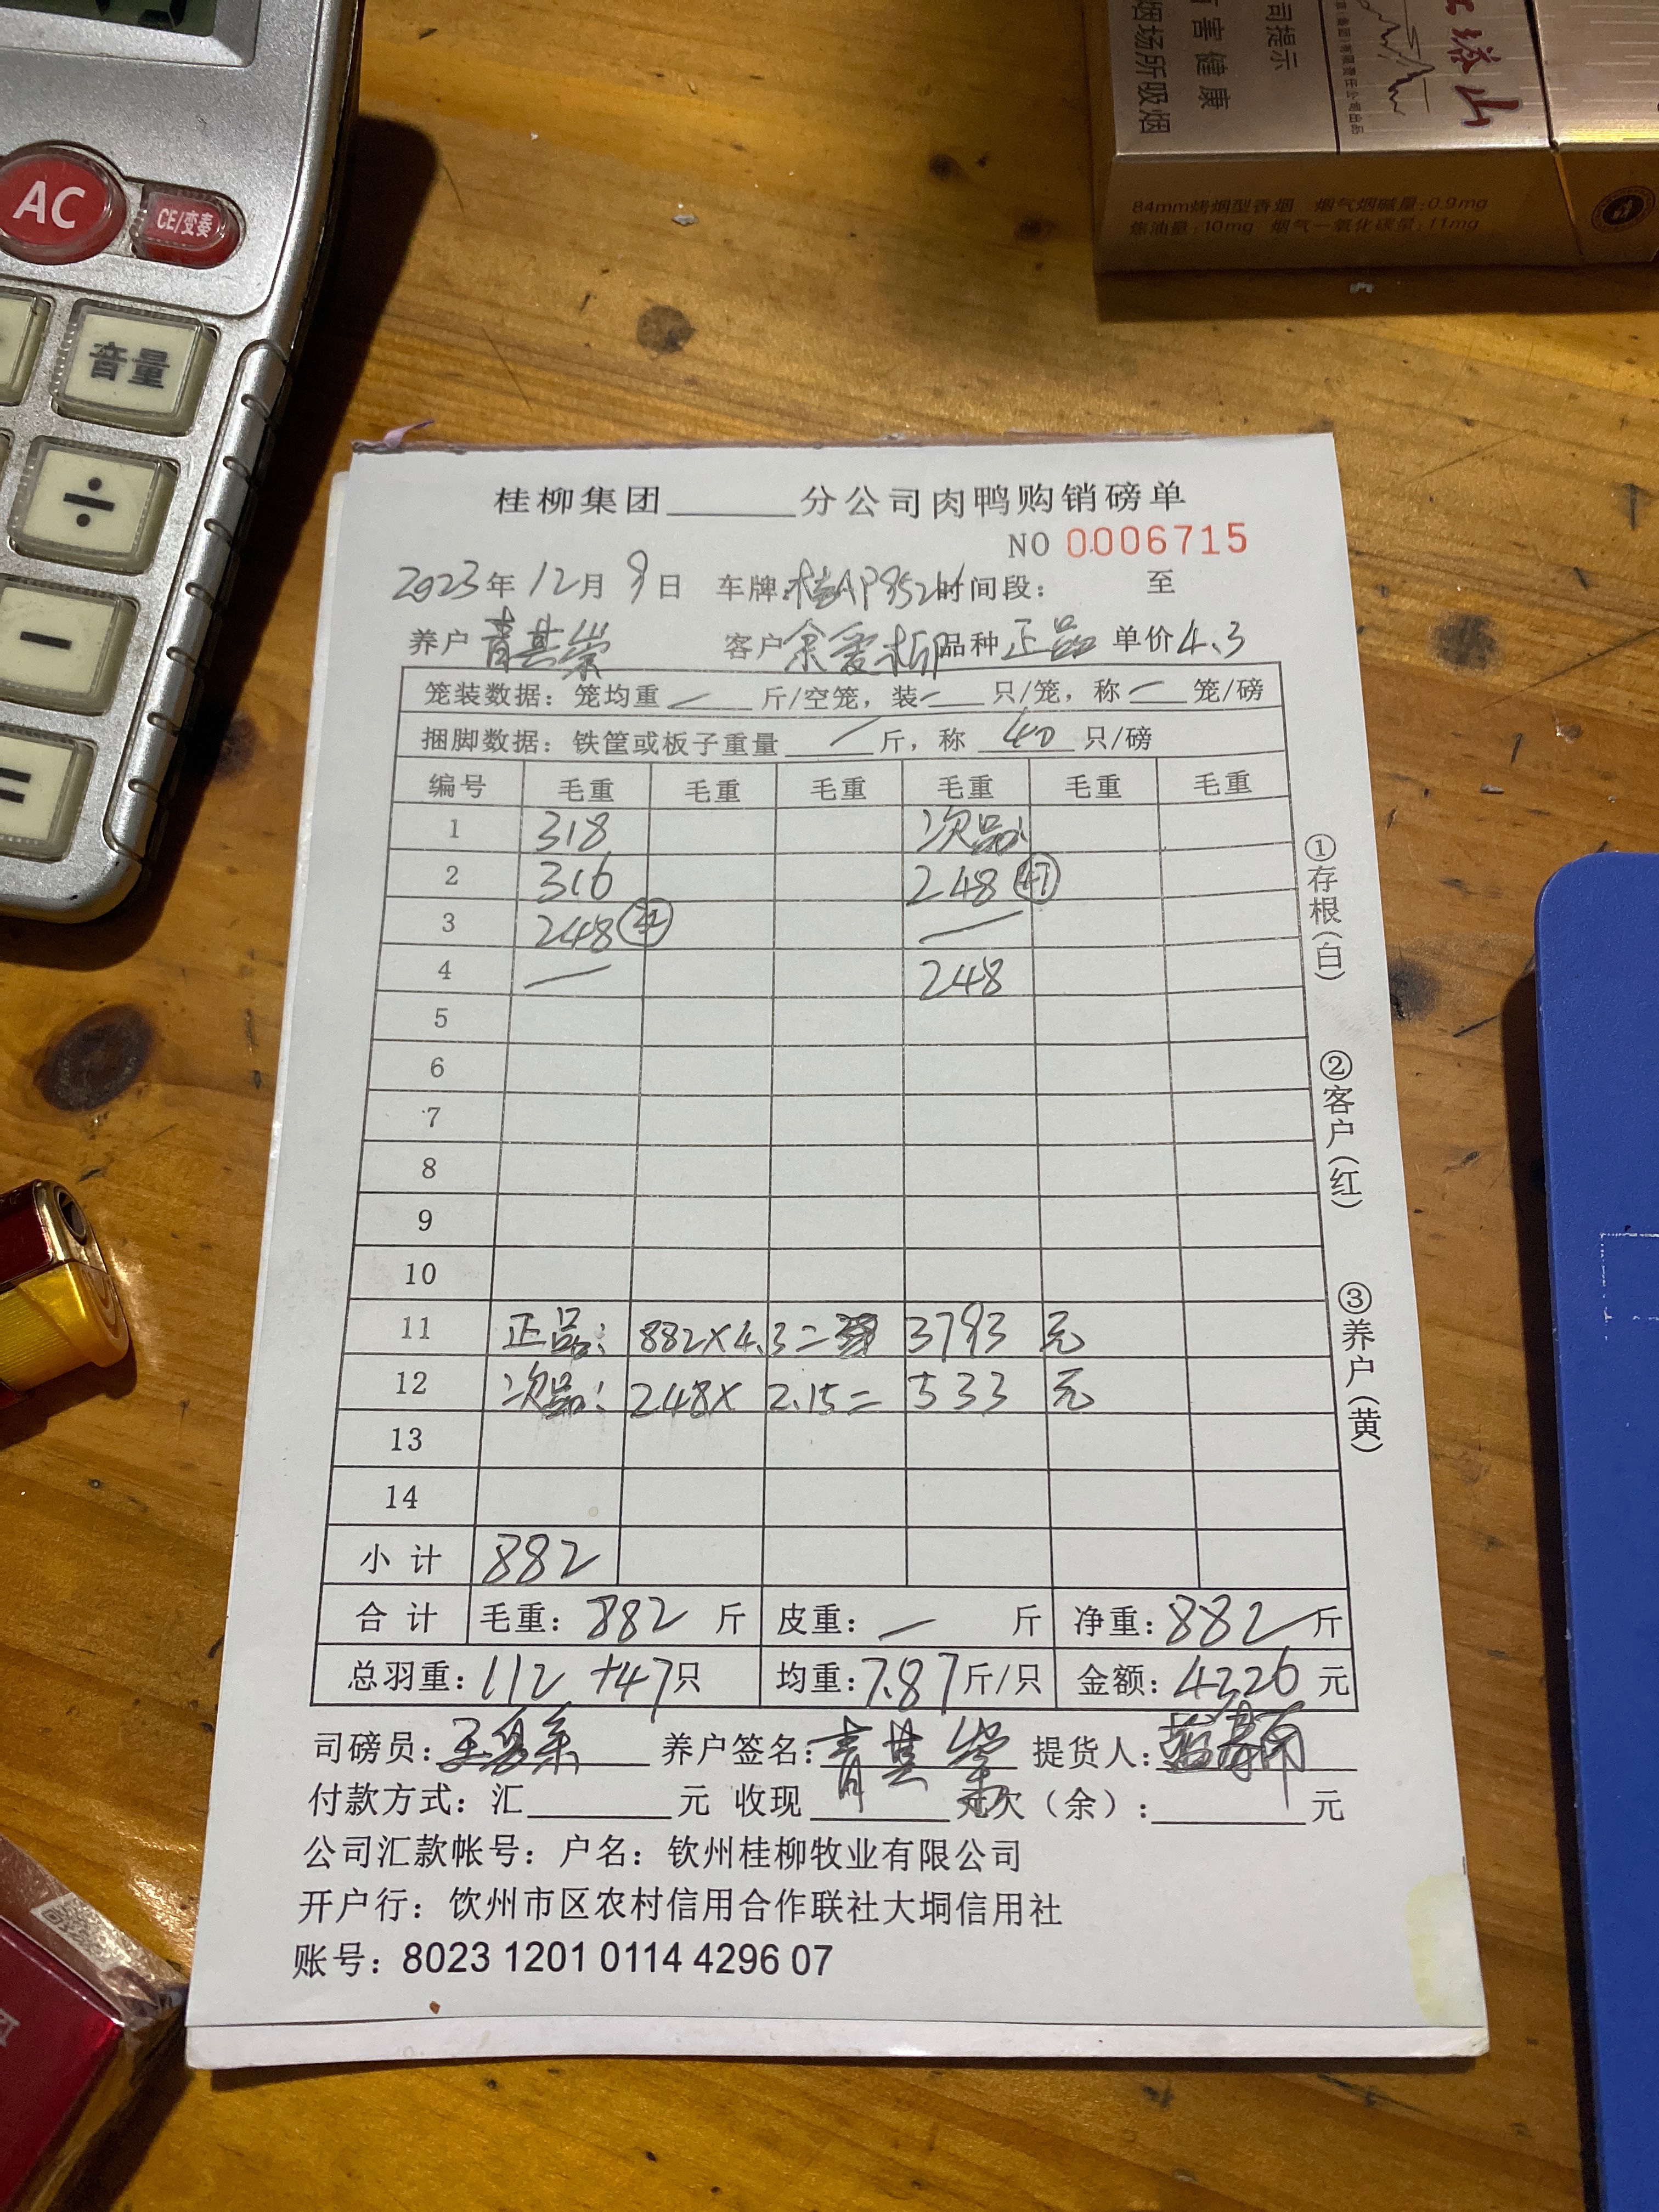 AC
CE/变奏
音量
÷
−
=
司提示
害健康
烟场所吸烟
塔山
84mm烤烟型香烟 烟气烟碱量:0.9mg
焦油量:10mg 烟气一氧化碳量:11mg
桂柳集团______分公司肉鸭购销磅单
NO 0006715
2023年12月9日 车牌: 时间段: 至
养户 青其崇 客户 余爱柳 品种 正品 单价 4.3
笼装数据：笼均重 — 斤/空笼，装 — 只/笼，称 — 笼/磅
捆脚数据：铁筐或板子重量 — 斤，称 40 只/磅
编号 毛重 毛重 毛重 毛重 毛重 毛重
1 318 次品:
2 316 248 47
3 248 —
4 — 248
5
6
7
8
9
10
11 正品: 882×4.3= 3793 元
12 次品: 248× 2.15= 533 元
13
14
小计 882
合计 毛重：882 斤 皮重：— 斤 净重：882 斤
总羽重：112 +47只 均重：7.87斤/只 金额：4226 元
司磅员： 养户签名：青其崇 提货人：
付款方式：汇______元 收现______元 欠（余）：______元
公司汇款帐号：户名：钦州桂柳牧业有限公司
开户行：钦州市区农村信用合作联社大垌信用社
账号：8023 1201 0114 4296 07
①存根(白)
②客户(红)
③养户(黄)